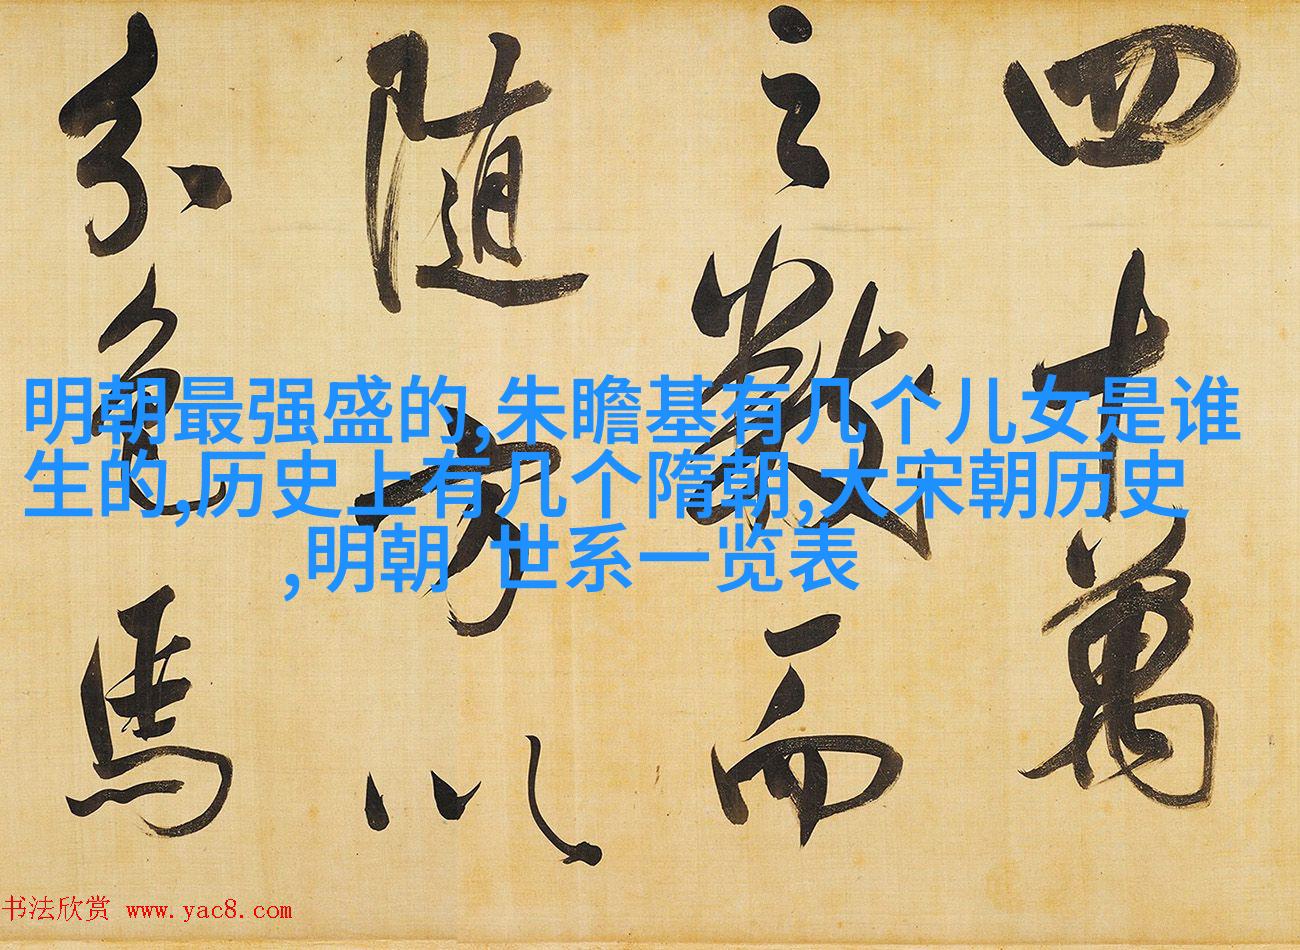 四十萬
之數而
隨方以
分色焉
明朝最强盛的,朱瞻基有几个儿女是谁
生的,历史上有几个隋朝,大宋朝历史
,明朝 世系一览表
书法欣赏 www.yac8.com